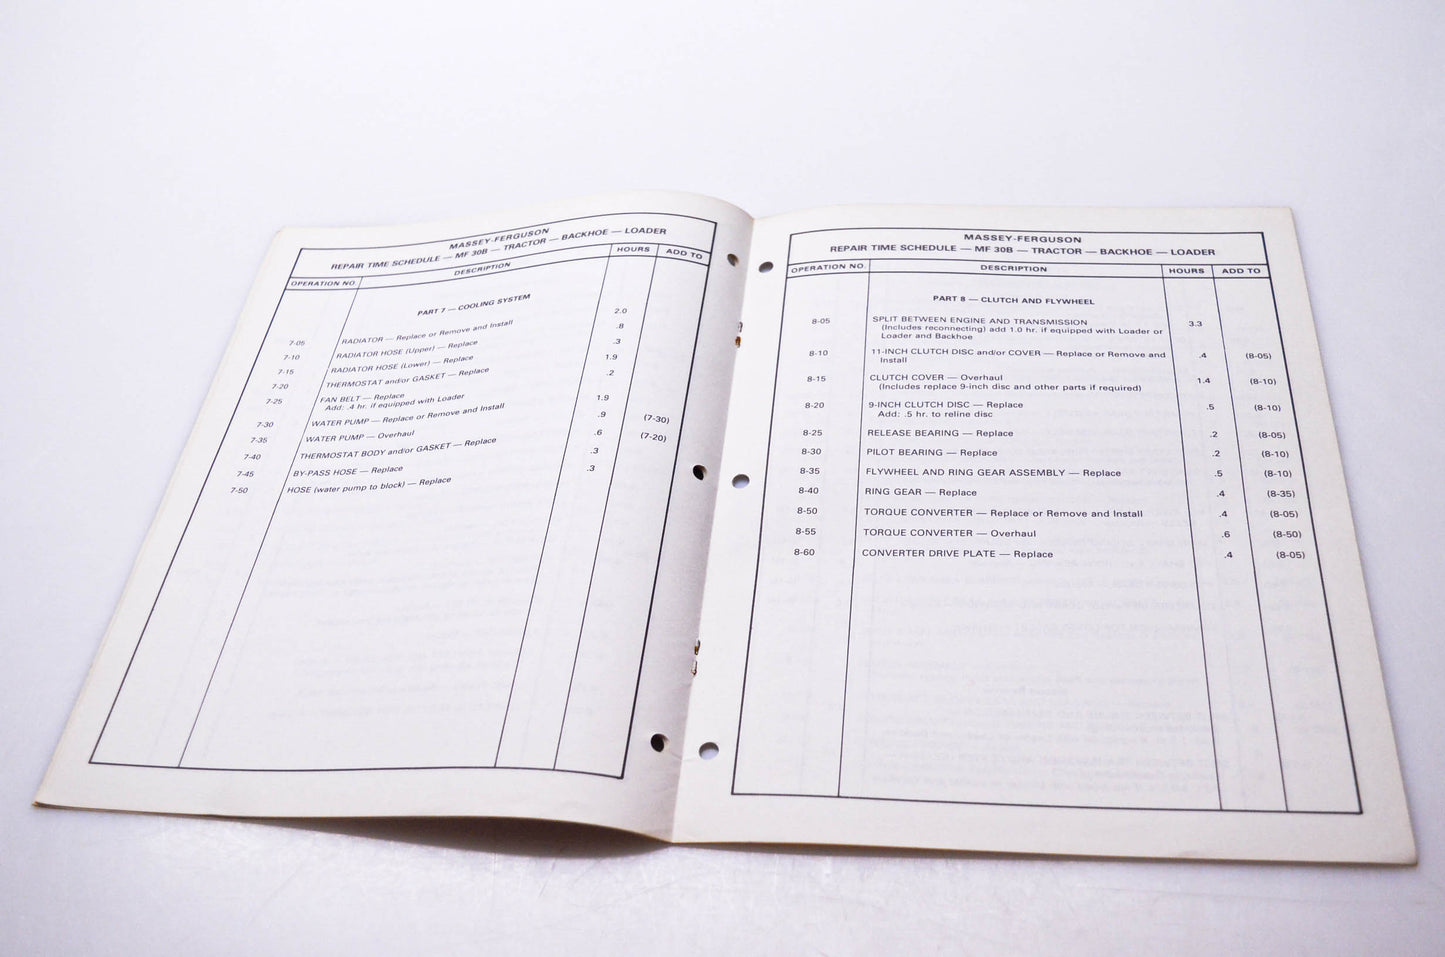 MASSEY-FERGUSON
REPAIR TIME SCHEDULE — MF 30B — TRACTOR — BACKHOE — LOADER
OPERATION NO. DESCRIPTION HOURS ADD TO
PART 7 — COOLING SYSTEM
7-05 RADIATOR — Replace or Remove and Install 2.0
7-10 RADIATOR HOSE (Upper) — Replace .8
7-15 RADIATOR HOSE (Lower) — Replace .3
7-20 THERMOSTAT and/or GASKET — Replace 1.9
7-25 FAN BELT — Replace .2
Add: .4 hr. if equipped with Loader
7-30 WATER PUMP — Replace or Remove and Install 1.9
7-35 WATER PUMP — Overhaul .9 (7-30)
7-40 THERMOSTAT BODY and/or GASKET — Replace .6 (7-20)
7-45 BY-PASS HOSE — Replace .3
7-50 HOSE (water pump to block) — Replace .3
MASSEY-FERGUSON
REPAIR TIME SCHEDULE — MF 30B — TRACTOR — BACKHOE — LOADER
OPERATION NO. DESCRIPTION HOURS ADD TO
PART 8 — CLUTCH AND FLYWHEEL
8-05 SPLIT BETWEEN ENGINE AND TRANSMISSION 3.3
(Includes reconnecting) add 1.0 hr. if equipped with Loader or
Loader and Backhoe
8-10 11-INCH CLUTCH DISC and/or COVER — Replace or Remove and .4 (8-05)
Install
8-15 CLUTCH COVER — Overhaul 1.4 (8-10)
(Includes replace 9-inch disc and other parts if required)
8-20 9-INCH CLUTCH DISC — Replace .5 (8-10)
Add: .5 hr. to reline disc
8-25 RELEASE BEARING — Replace .2 (8-05)
8-30 PILOT BEARING — Replace .2 (8-10)
8-35 FLYWHEEL AND RING GEAR ASSEMBLY — Replace .5 (8-10)
8-40 RING GEAR — Replace .4 (8-35)
8-50 TORQUE CONVERTER — Replace or Remove and Install .4 (8-05)
8-55 TORQUE CONVERTER — Overhaul .6 (8-50)
8-60 CONVERTER DRIVE PLATE — Replace .4 (8-05)